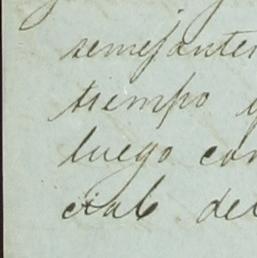 semejante
tiempo
luego con
cial del